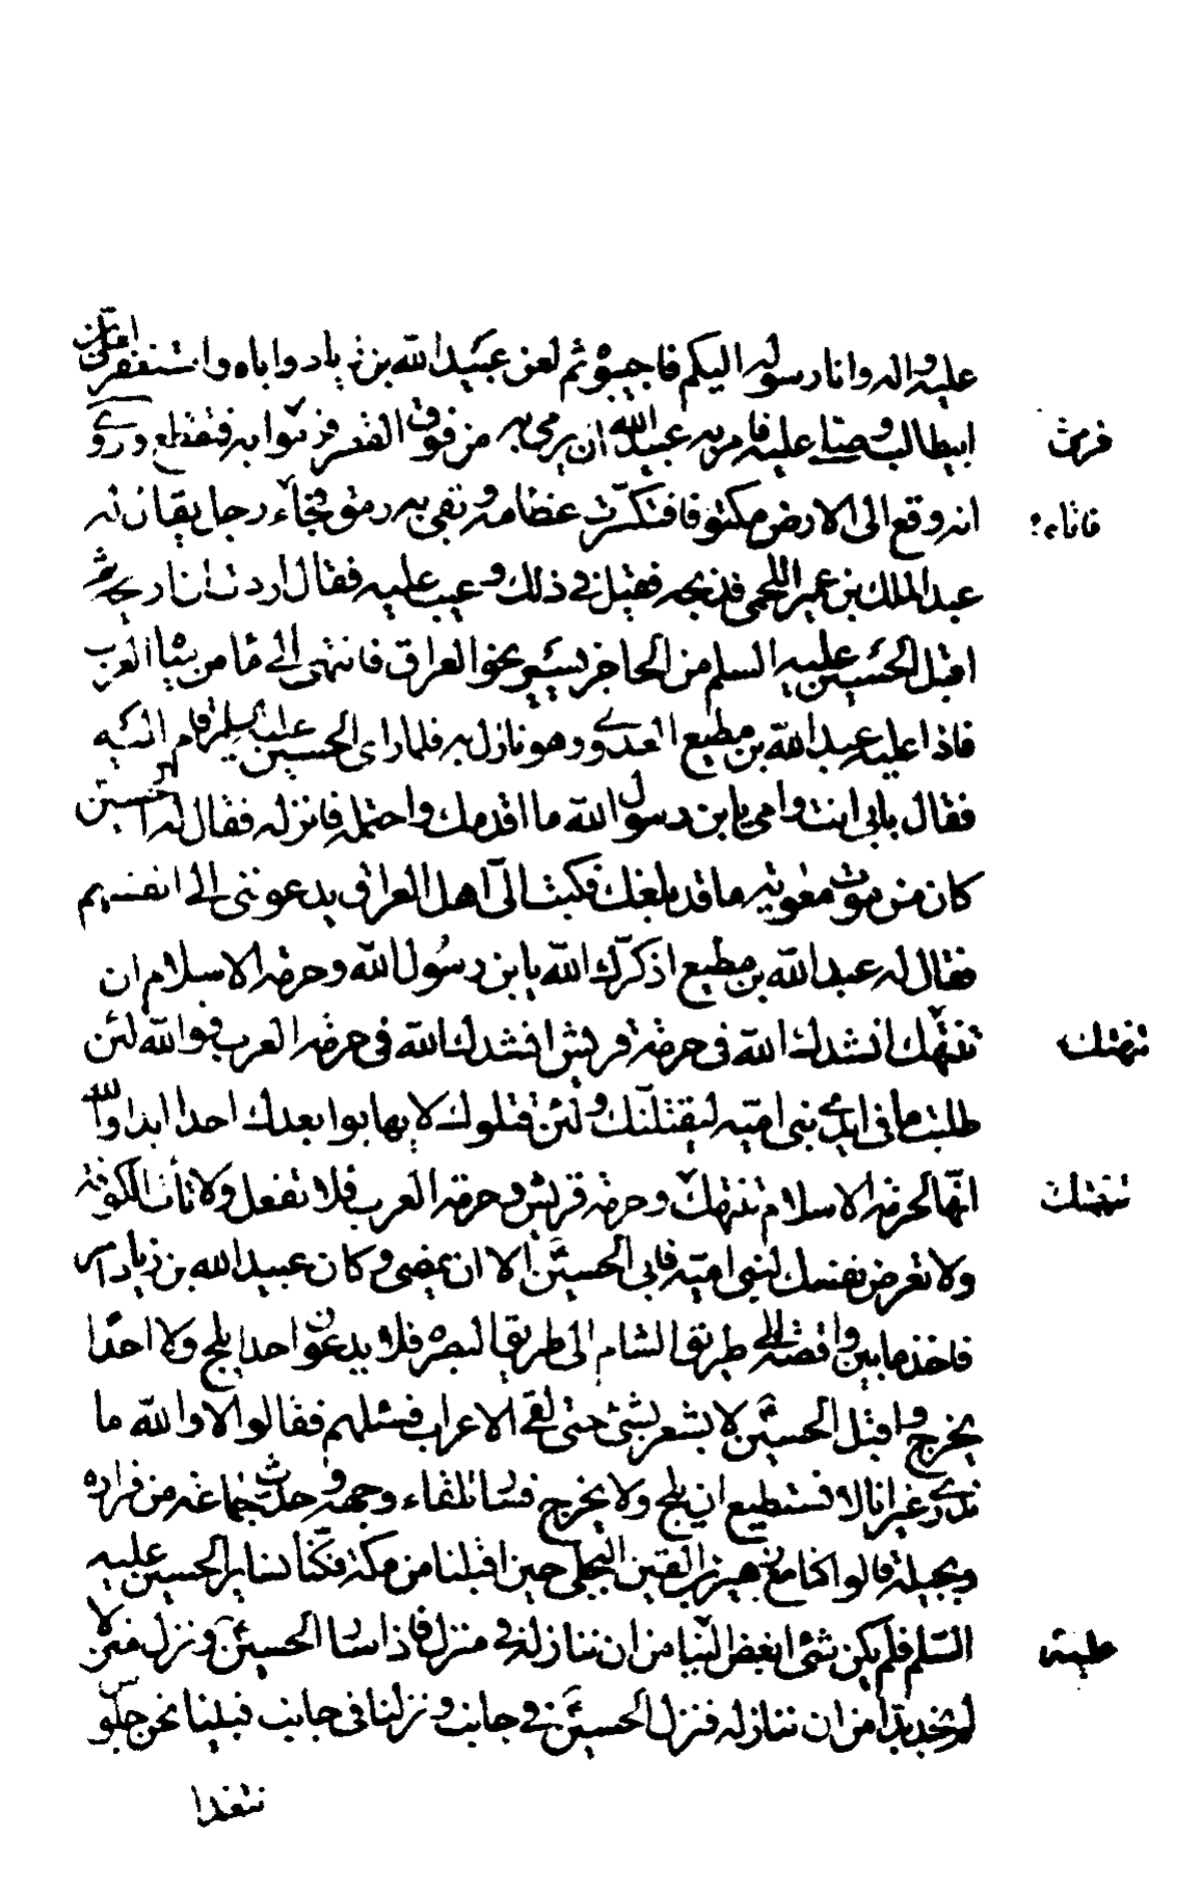 عليه واله وانا رسوله اليكم فاجيبوه ثم لعن عبيد الله بن زياد واباه واستغفر لعلى بن
ابيطالب وصلى عليه فامر به عبيد الله ان يرمى به من فوق القصر فرموا به فتقطع وروى
فرمى
انه وقع الى الارض مكتوفا فتكسرت عظامه وبقى به رمق فجاء رجل يقال له
فاتاه؟
عبد الملك بن عمير اللخمى فذبحه فقيل فى ذلك وعيب عليه فقال اردت ان اريحه ثم
اقبل الحسين عليه السلم من الحاجز يسير نحو العراق فانتهى الى ماء من مياه العرب
فاذا عليه عبد الله بن مطيع العدوى وهو نازل به فلما راى الحسين عليه السلم قام اليه
فقال بابى انت وامى يابن رسول الله ما اقدمك واحتمله فانزله فقال له الحسين
كان من موت معوية ما قد بلغك فكتب الى اهل العراق يدعوننى الى انفسهم
فقال له عبد الله بن مطيع اذكرك الله يابن رسول الله وحرمة الاسلام ان
تنتهك انشدك الله فى حرمة قريش انشدك الله فى حرمة العرب فوالله لئن
تنهتك
طلبت ما فى ايدى بنى امية ليقتلنك ولئن قتلوك لا يهابوا بعدك احدا ابدا والله
انها لحرمة الاسلام تنتهك وحرمة قريش وحرمة العرب فلا تفعل ولا تأت الكوفة
تنهتك
ولا تعرض نفسك لبنى امية فابى الحسين الا ان يمضى وكان عبيد الله بن زياد امر
فاخذ ما بين واقصة الى طريق الشام الى طريق البصره فلا يدعون احدا يلج ولا احدا
يخرج واقبل الحسين لا يشعر بشئ حتى لقى الاعراب فسئلهم فقالوا لا والله ما
ندرى غير انا لا نستطيع ان نلج ولا نخرج فسار تلقاء وجهه وحدث جماعة من فزاره
وبجيلة قالوا كنا مع زهير بن القين البجلى حين اقبلنا من مكة فكنا نساير الحسين عليه
السلم فلم يكن شئ ابغض الينا من ان ننازله فى منزل فاذا سار الحسين ونزل منزلا
عليه
لم نجد بدا من ان ننازله فنزل الحسين فى جانب ونزلنا فى جانب فبينا نحن جلوس
نتغدا